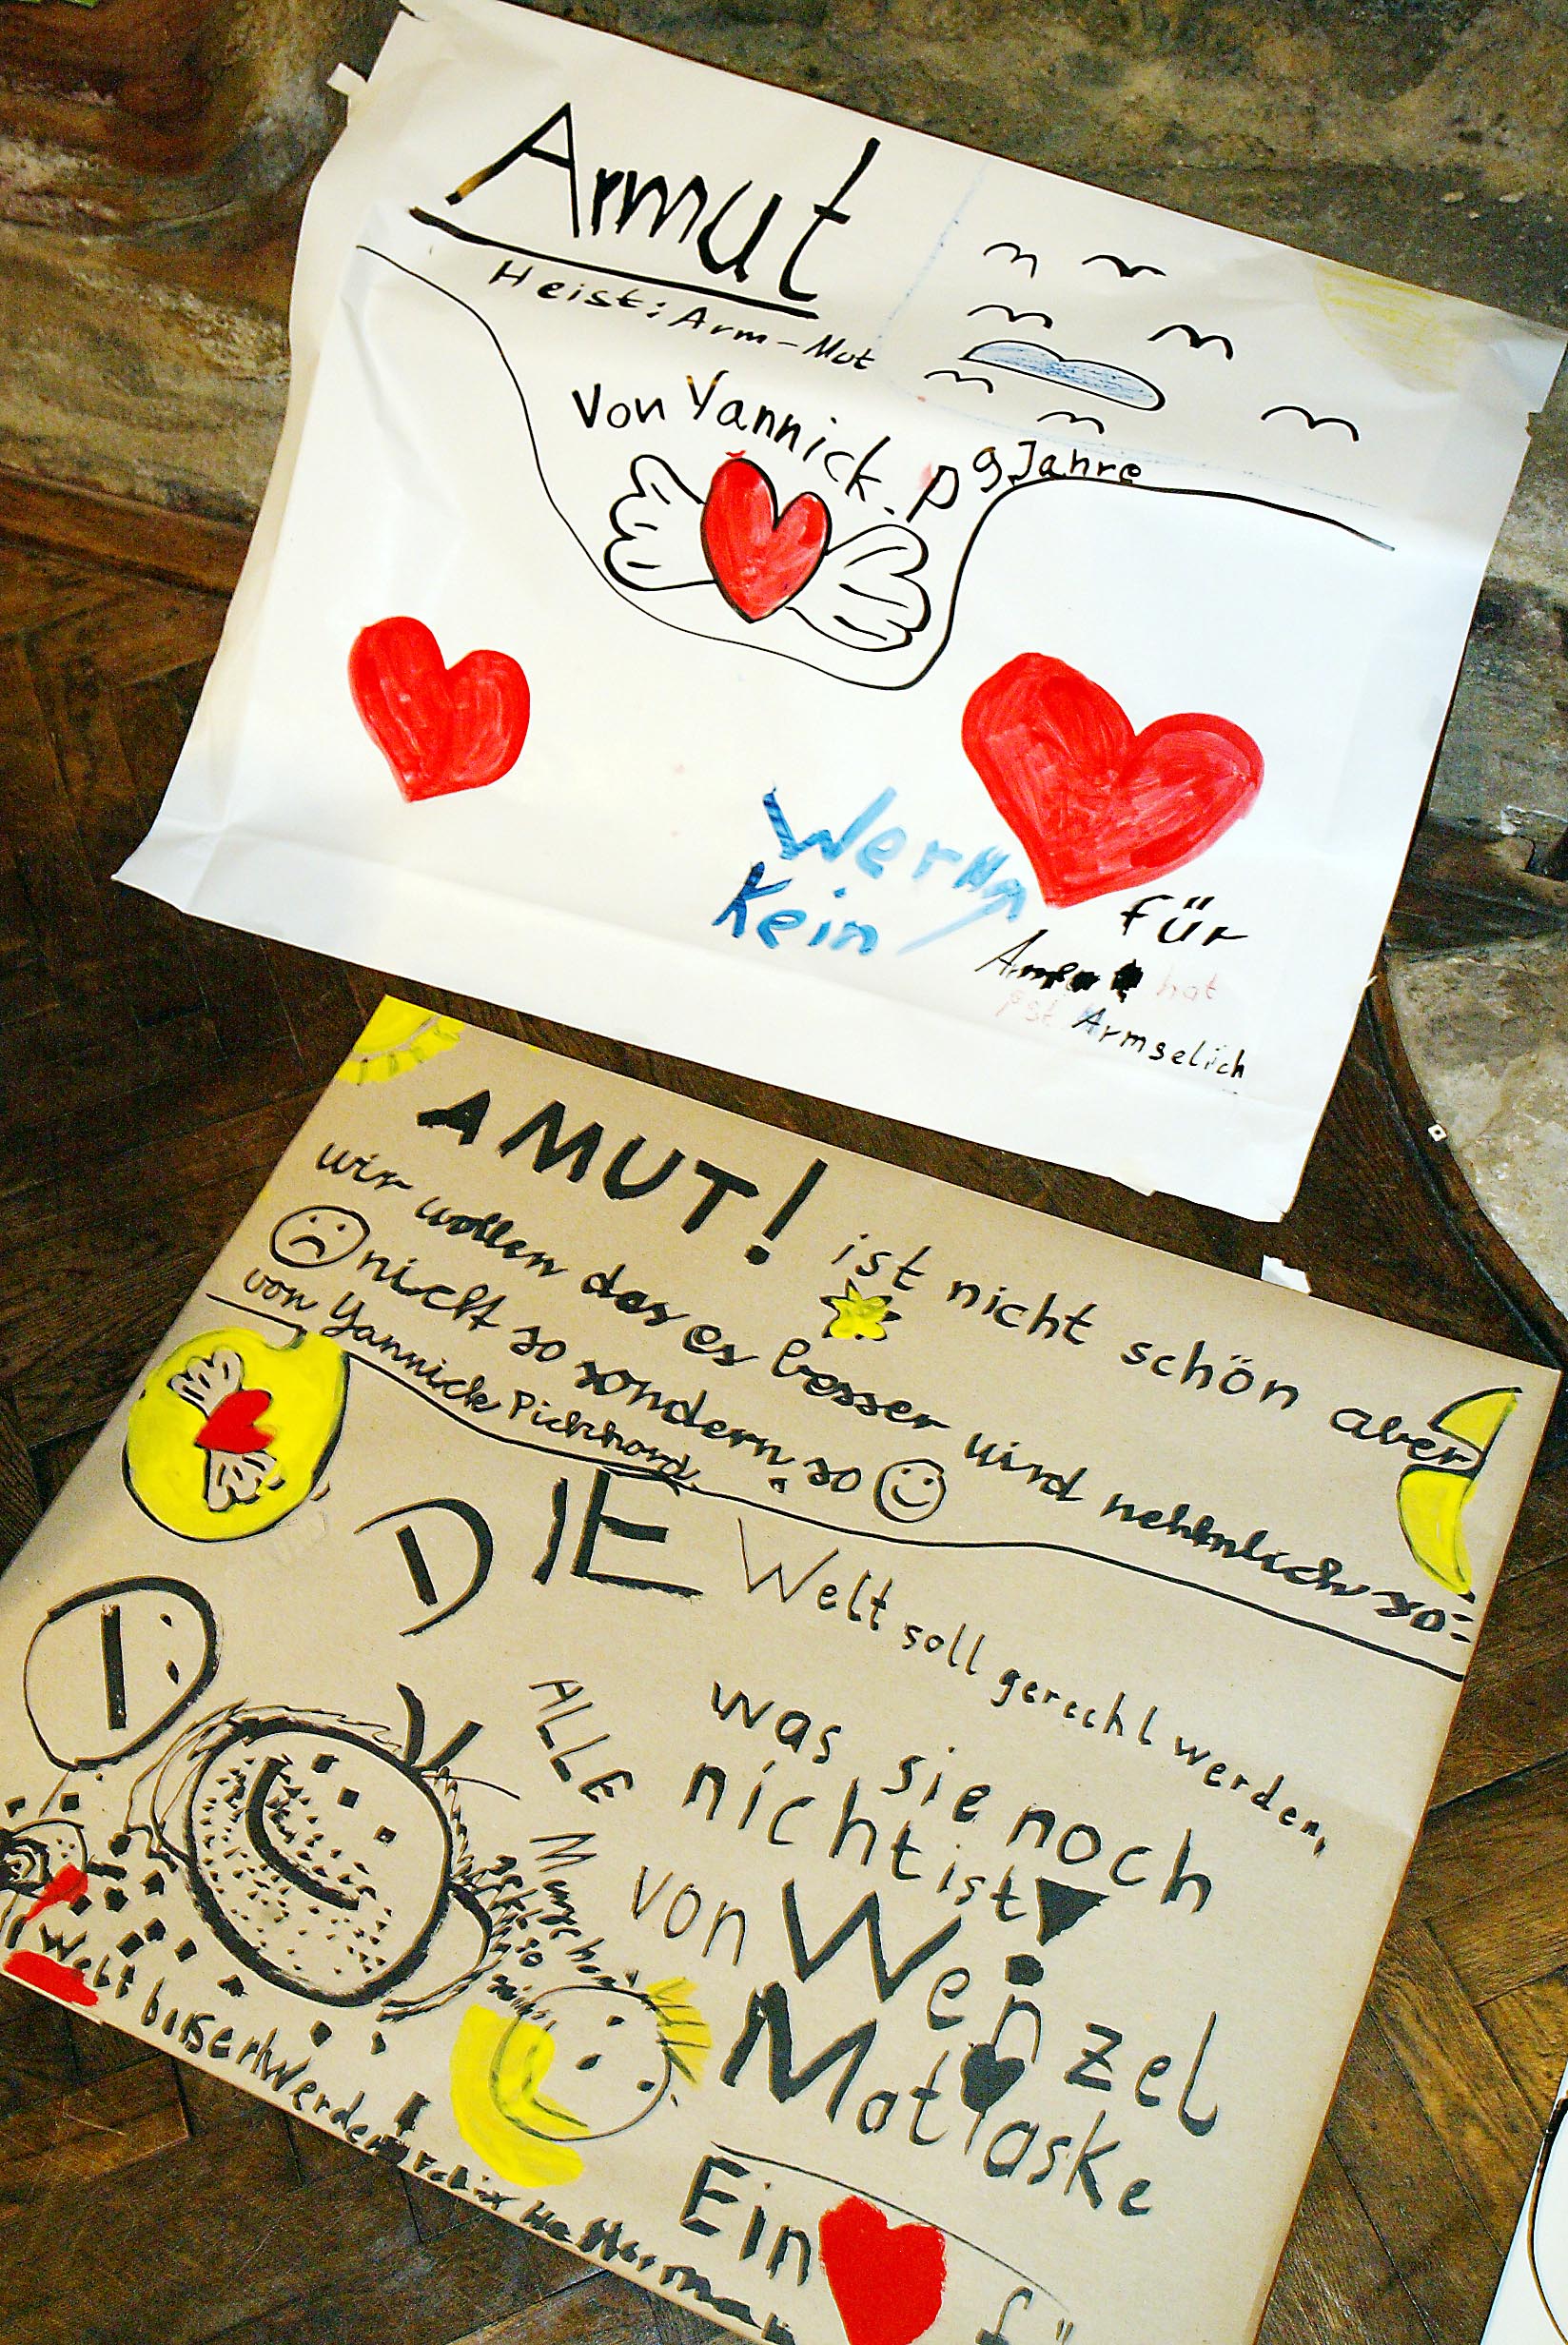 Armut
Heist: Arm-Mut
Von Yannick. P 9 Jahre
Wer
Kein
für
hat
Armselich
AMUT! ist nicht schön aber
wir wollen das es besser wird nehmlich so:
nicht so sondern so
von Yannick Pickhard
DIE Welt soll gerecht werden,
was sie noch
nicht ist
ALLE Menschen
von Wenzel
Matlaske
Welt beßert Werden!
Ein